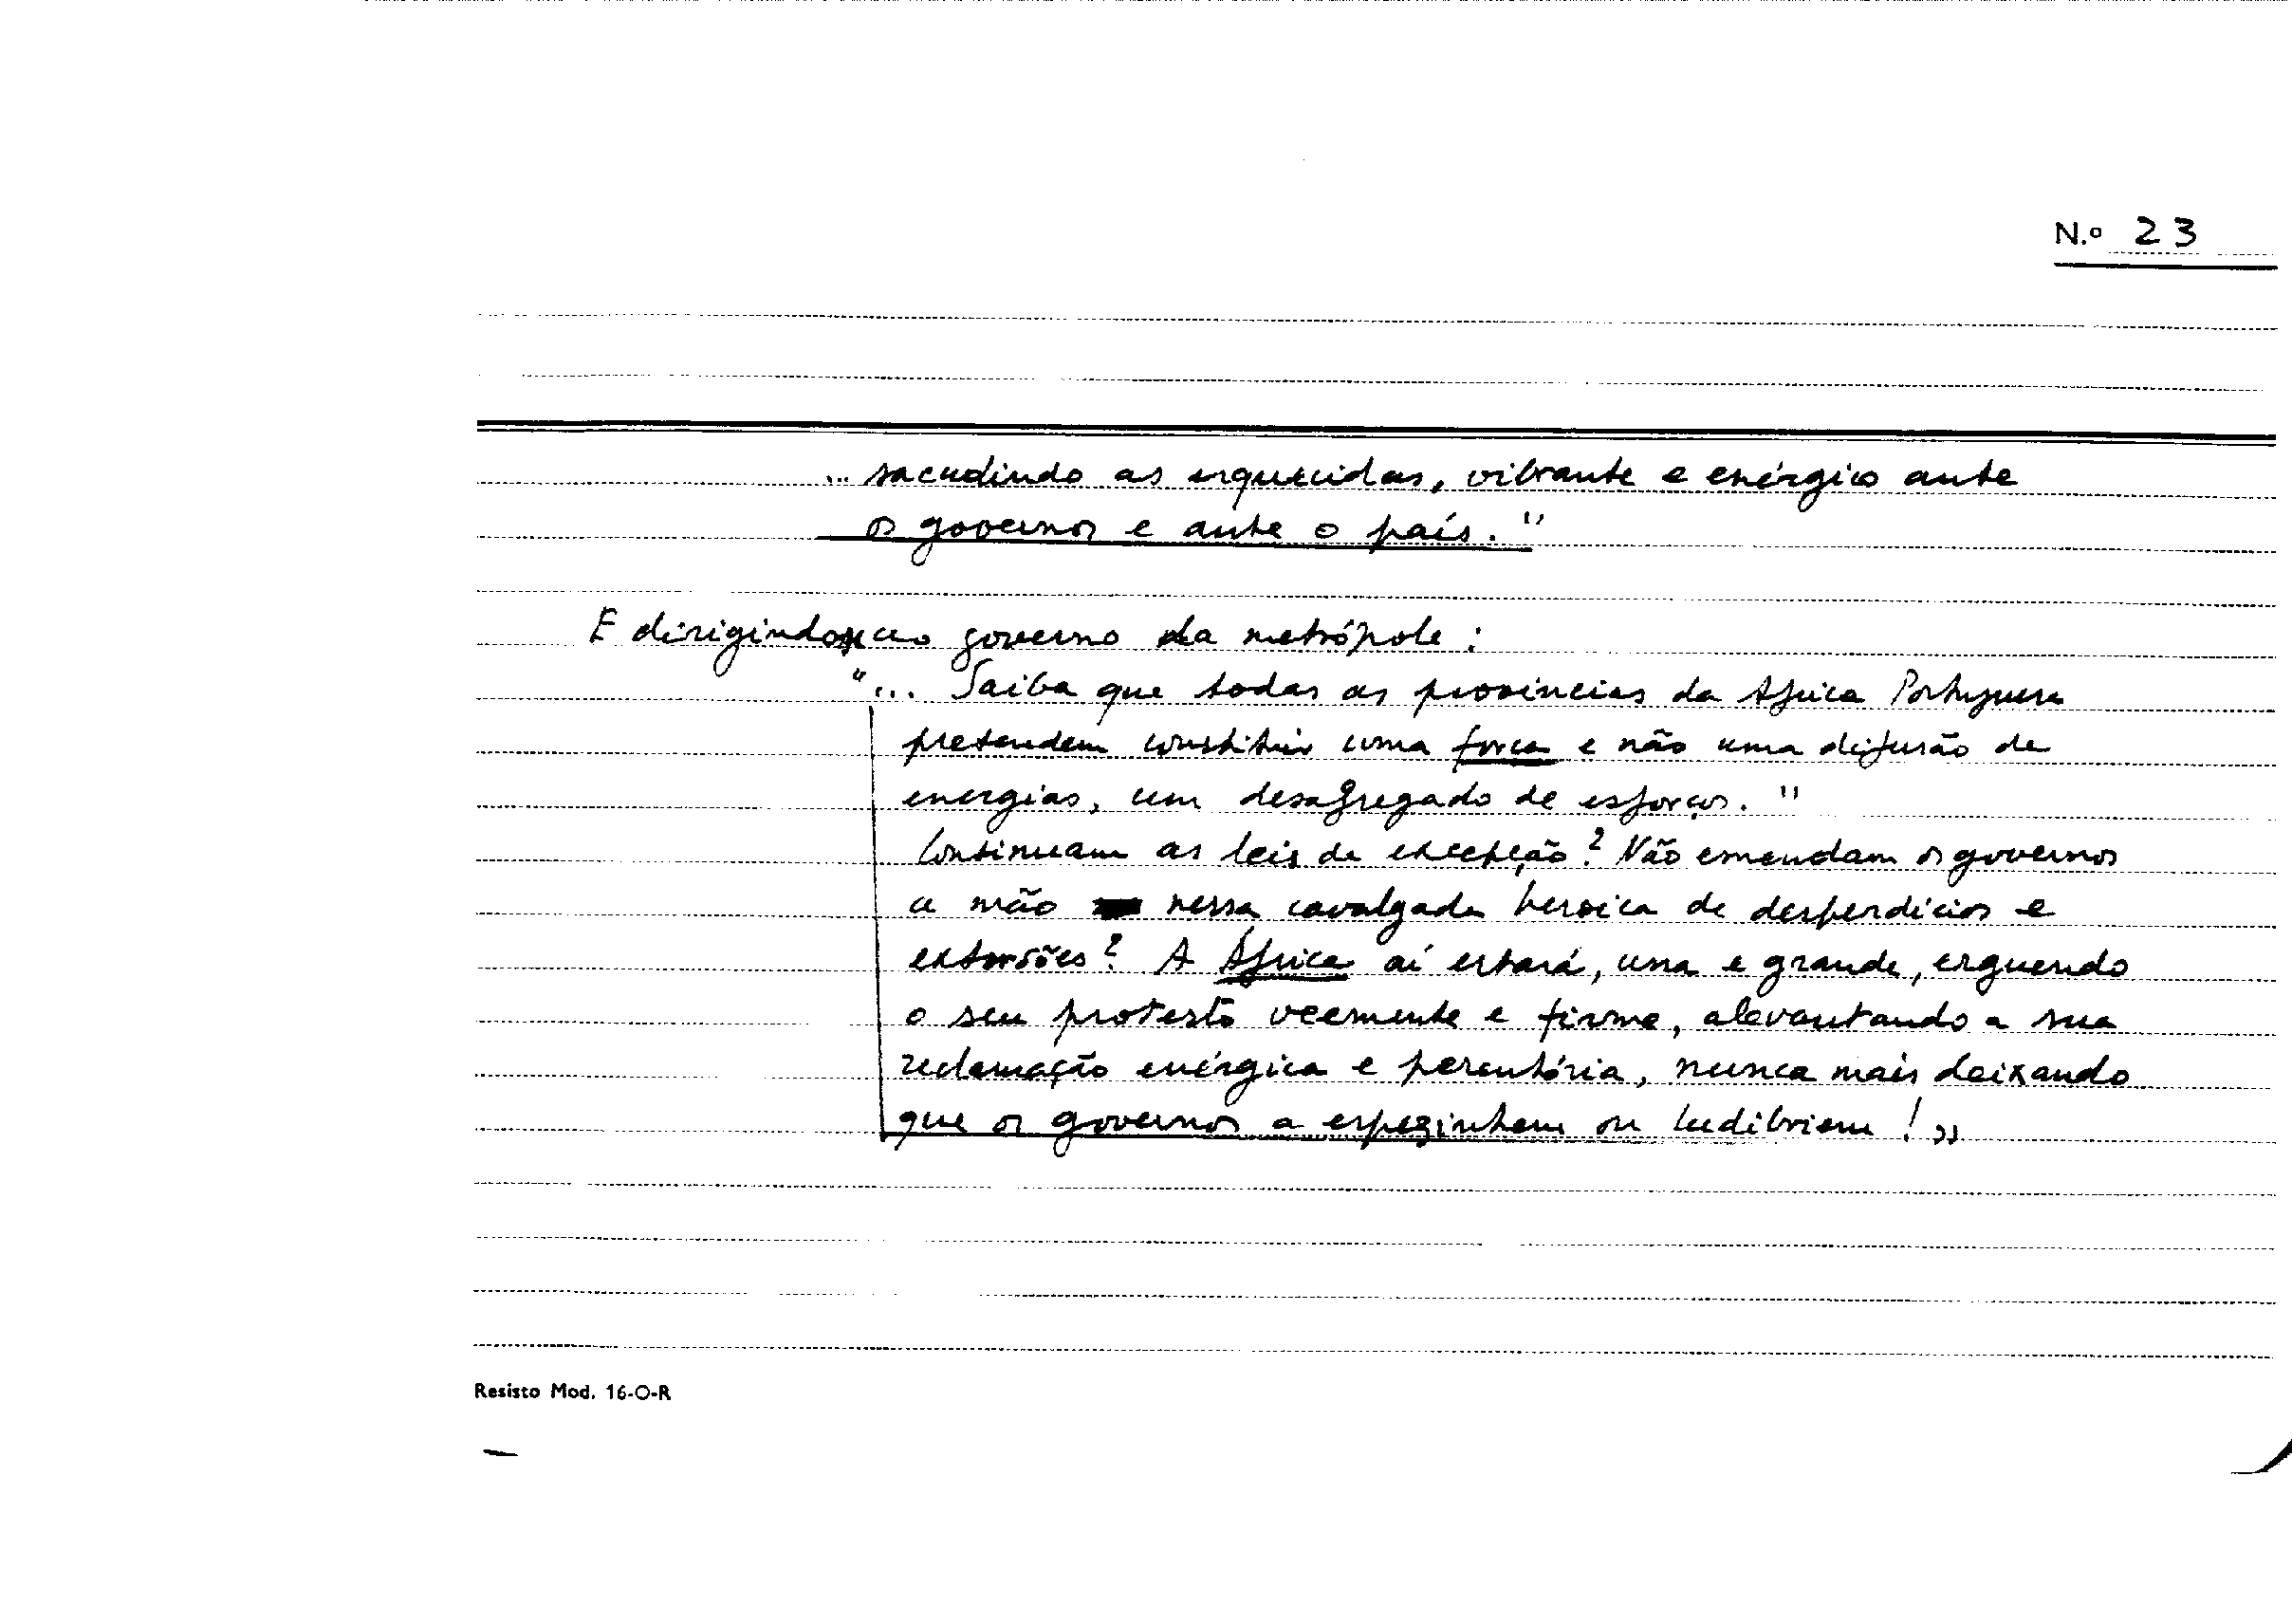 N.º 23
... sacudindo as esquecidas, vibrante e enérgico ante
os governos e ante o país."
E dirigindo-se ao governo da metrópole:
"... Saiba que todas as províncias da África Portuguesa
pretendem constituir uma força e não uma difusão de
energias, um desagregado de esforços."
Continuam as leis de excepção? Não emendam os governos
a mão nessa cavalgada heroica de desperdícios e
extorsões? A África aí estará, una e grande, erguendo
o seu protesto veemente e firme, alevantando a sua
reclamação enérgica e perentória, nunca mais deixando
que os governos a espezinhem ou ludibriem!"
Resisto Mod. 16-O-R